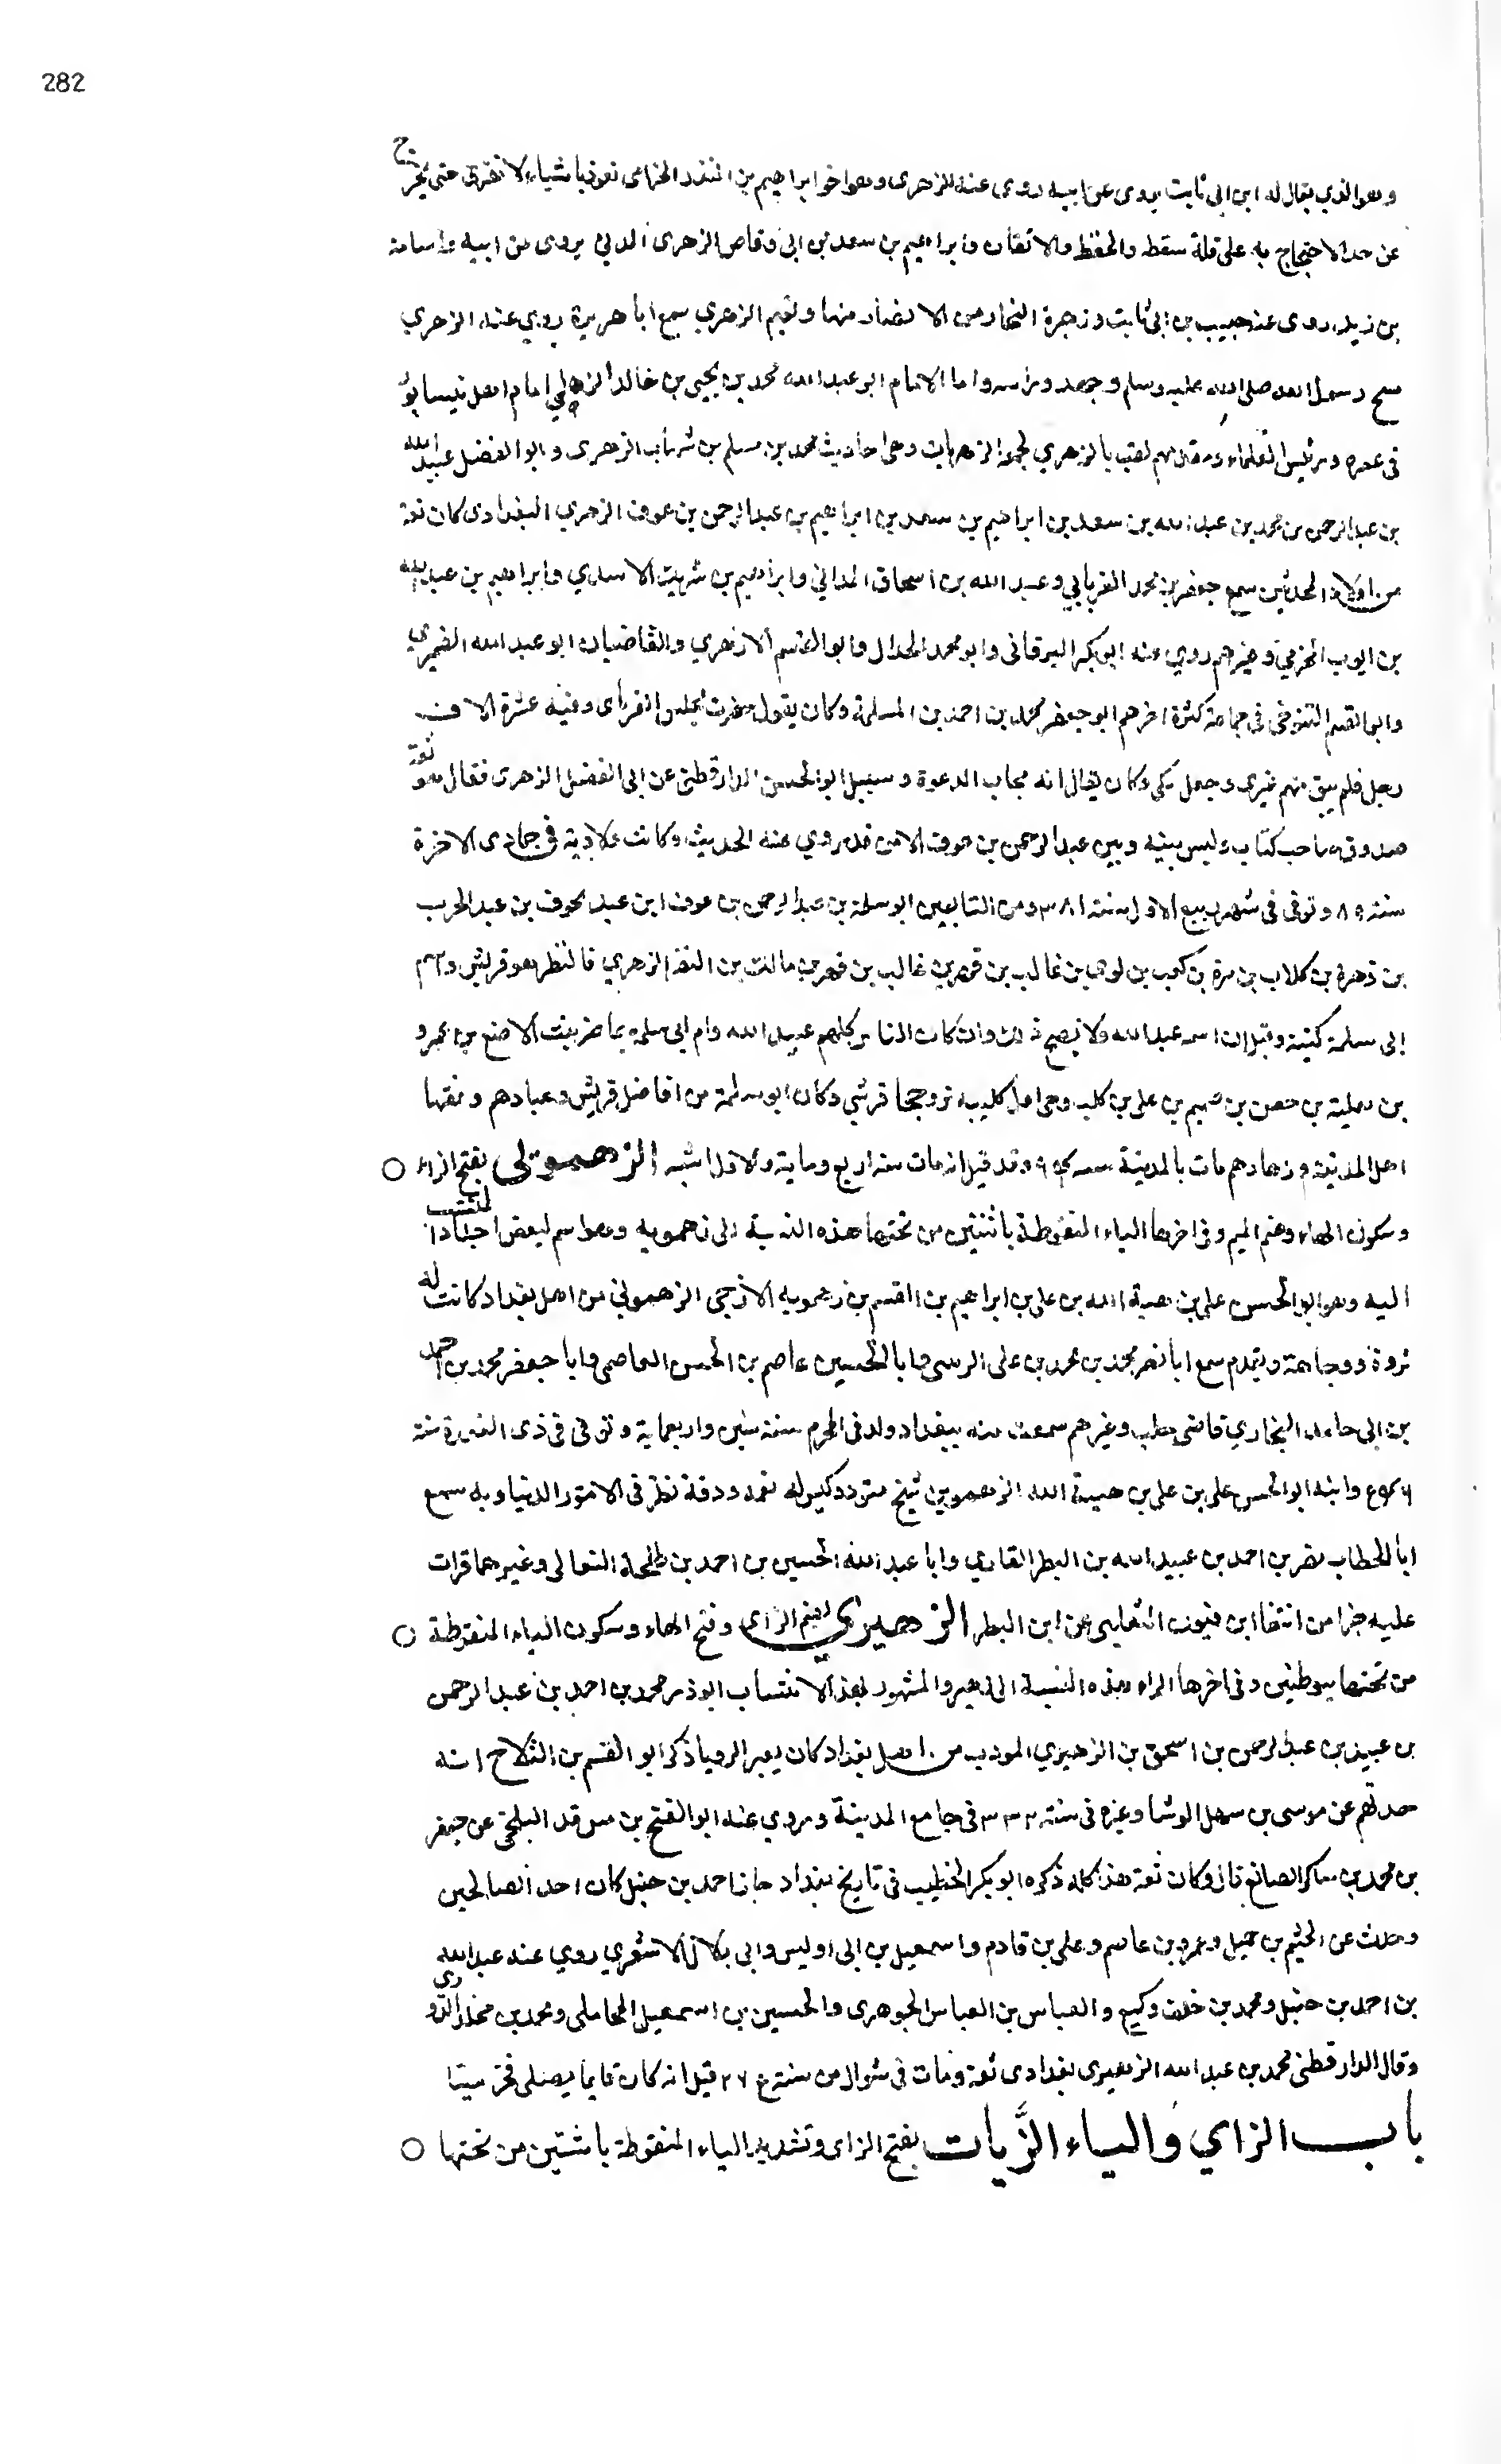 282
وهو الذي يقال له ابن ابى ثابت يروى عن ابيه روى عنه الزهرى وهو اخو ابراهيم بن المنذر الحزامى تفرد باشياء لا تعرف حتى خرج
عن حد الاحتجاج به على قلة سقطه والحفظ والاتقان وابراهيم بن سعد بن ابى وقاص الزهرى المدنى يروى عن ابيه واسامة
بن زيد روى عنه حبيب بن ابى ثابت وزهرة النجار من الانصار منها وتميم الزهري سمع ابا هريرة روي عنه الزهري
سمع رسول الله صلى الله عليه وسلم واما الامام ابو عبد الله محمد بن يحيى بن خالد الزهلي امام اهل نيسابور
فى عصره ورئيس العلماء ومقدمهم لقب بالزهري لجمعه الزهريات وهى احاديث محمد بن مسلم بن شهاب الزهرى وابو الفضل عبيد الله
بن عبد الرحمن بن محمد بن عبد الله بن سعد بن ابراهيم بن سعد بن ابراهيم بن عبد الرحمن بن عوف الزهري البغدادى كان ثقة
من اولاد المحدثين سمع جعفر بن محمد الفريابي وعبد الله بن اسحاق المدائني وابراهيم بن شريك الاسدي وابراهيم بن عبد الله
بن ايوب المخرمي وغيرهم روي عنه ابو بكر البرقانى وابو محمد الخلال وابو القاسم الازهري والقاضيان ابو عبد الله الصيمري
وابو القسم التنوخى فى جماعة كثيرة اخرهم ابو جعفر محمد بن احمد بن المسلمة وكان يقول حضرت مجلس الفريابى وفيه عشرة الاف
رجل فلم يبق منهم غيرى وجعل يبكي وكان يقال انه مجاب الدعوة وسئل ابو الحسن الدارقطنى عن ابى الفضل الزهرى فقال هو ثقة
صدوق صاحب كتاب وليس بينه وبين عبد الرحمن بن عوف الا من قد روي عنه الحديث وكانت ولادته فى جمادى الاخرة
سنة ٢٩٠ وتوفى فى شهر ربيع الاول سنة ٣٨١ ومن التابعين ابو سلمة بن عبد الرحمن بن عوف ابن عبد عوف بن عبد الحرب
بن زهرة بن كلاب بن مرة بن كعب بن لوى بن غالب بن فهر بن مالك بن النضر الزهري فالنضر هو قريش واسم
ابى سلمة كنيته وقيل ان اسمه عبد الله ولا يصح ذلك وان كان الناس كلهم عبيد الله وام ابى سلمة تماضر بنت الاصبغ بن عمرو
بن ثعلبة بن حصن بن ضمضم بن على بن كلب وهى اول كلبية تزوجها قرشي وكان ابو سلمة من افاضل قريش وعبادهم وفقها
اهل المدينة وزهادهم مات بالمدينة سنة ٩٤ وقد قيل انه مات سنة اربع وماية والاول اشبه الزهموىى بفتح الزاء
وسكون الهاء وضم الميم وفى اخرها الياء المنقوطة باثنتين من تحتها هذه النسبة الى زهمويه وهو اسم لبعض اجداد المنتسب
اليه وهو ابو الحسن على بن هبة الله بن على بن ابراهيم بن القسم بن زهمويه الازجى الزهموئي من اهل بغداد كانت له
ثروة ووجاهة وتقدم سمع ابا نصر محمد بن محمد بن على الزينبى وابا الحسين عاصم بن الحسن العاصمى وابا جعفر محمد بن احمد
بن ابى حامد البخاري قاضى حلب وغيرهم سمعت منه ببغداد ولد فى المحرم سنة ستين واربعماية وتوفى فى ذى القعدة سنة
وابنه ابو الحسن على بن على بن هبة الله الزهمويى شيخ متودد كيس له فهم ودقة نظر فى الامور الدنياوية سمع
ابا الخطاب نصر بن احمد بن عبيد الله بن البطر القاري وابا عبد الله الحسين بن احمد بن طلحة النعالى وغيرهما قرات
عليه جزا من انتقا ابن عن ابن البطر الزهيري بضم الزاى وفتح الهاء وسكون الياء المنقوطة
من تحتها بنقطتين وفى اخرها الراء هذه النسبة الى زهير والمشهور بهذا الانتساب ابو ذر محمد بن احمد بن عبد الرحمن
بن عبيد بن عبد الرحمن بن اسحق بن الزهيري المودب من اهل بغداد كان يعبر الرويا ذكر ابو القسم بن الثلاج انه
حدثهم عن موسى بن سهل الوشا وغيره فى سنة ٣٣٢ فى جامع المدينة وروي عنه ابو الفتح بن مسرور البلخى عن جعفر
بن محمد بن شاكر الصائغ قال وكان ثقة هذا كله ذكره ابو بكر الخطيب فى تاريخ بغداد احمد بن حنبل كان احد الصالحين
وحدث عن الهيثم بن جميل وعمرو بن عاصم وعلى بن قادم واسمعيل بن ابى اويس وابى بلال الاشعري روي عنه عبد الله
بن احمد بن حنبل ومحمد بن خلف وكيع والعباس بن العباس الجوهرى والحسين بن اسمعيل المحاملى ومحمد بن مخلد الدورى
وقال الدارقطنى محمد بن عبد الله الزهيرى بغدادى ثقة ومات فى شوال من سنة ٢٧٤ قيل انه كان قايما يصلى فخر ميتا
باب الزاي والياء الزَّيات بفتح الزاى وتشديد الياء المنقوطة باثنتين من تحتها